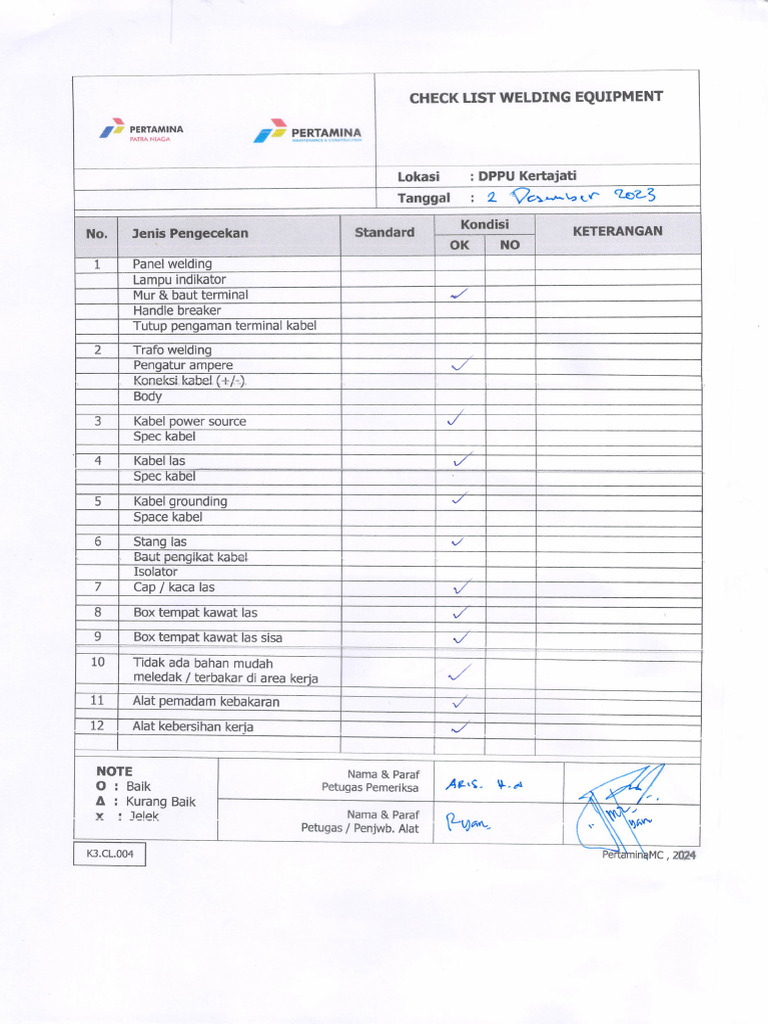 PERTAMINA
PATRA NIAGA
PERTAMINA
MAINTENANCE & CONSTRUCTION
CHECK LIST WELDING EQUIPMENT
Lokasi : DPPU Kertajati
Tanggal : 2 Desember 2023
No. Jenis Pengecekan Standard Kondisi KETERANGAN
OK NO
1 Panel welding
Lampu indikator
Mur & baut terminal ✓
Handle breaker
Tutup pengaman terminal kabel
2 Trafo welding
Pengatur ampere ✓
Koneksi kabel (+/-)
Body
3 Kabel power source ✓
Spec kabel
4 Kabel las ✓
Spec kabel
5 Kabel grounding ✓
Space kabel
6 Stang las ✓
Baut pengikat kabel
Isolator
7 Cap / kaca las ✓
8 Box tempat kawat las ✓
9 Box tempat kawat las sisa ✓
10 Tidak ada bahan mudah
meledak / terbakar di area kerja ✓
11 Alat pemadam kebakaran ✓
12 Alat kebersihan kerja ✓
NOTE
O : Baik
Δ : Kurang Baik
x : Jelek
Nama & Paraf
Petugas Pemeriksa
ARIS. H.N
Nama & Paraf
Petugas / Penjwb. Alat
Ryan
K3.CL.004
PertaminaMC , 2024